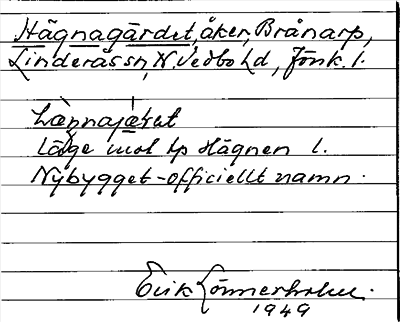 Hägnagärdet, åker, Brånarp,
Linderås sn, N. Vedbo hd, Jönk. l.
hæŋnajæ̀ɽet
Läge mot tp Hägnen l.
Nybygget - officiellt namn.
Erik Lönnerholm.
1949